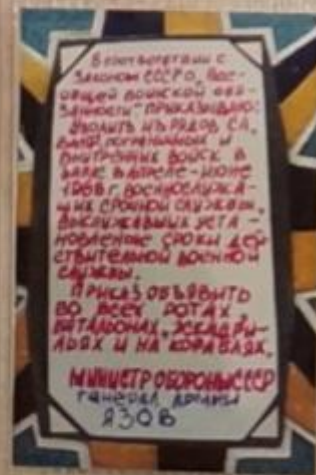 В соответствии с
Законом СССР О Все-
общей воинской обя-
занности" приказываю:
уволить из рядов СА,
ВМФ, пограничных и
внутренних войск в
запас в апреле - июне
г. военнослужа-
щих срочной службы,
выслуживших уста -
новленные сроки дей
ствительной военной
службы.
Приказ объявить
во всех ротах,
батальонах, эскадри-
льях и на кораблях.
Министр обороны СССР
генерал армии
Язов